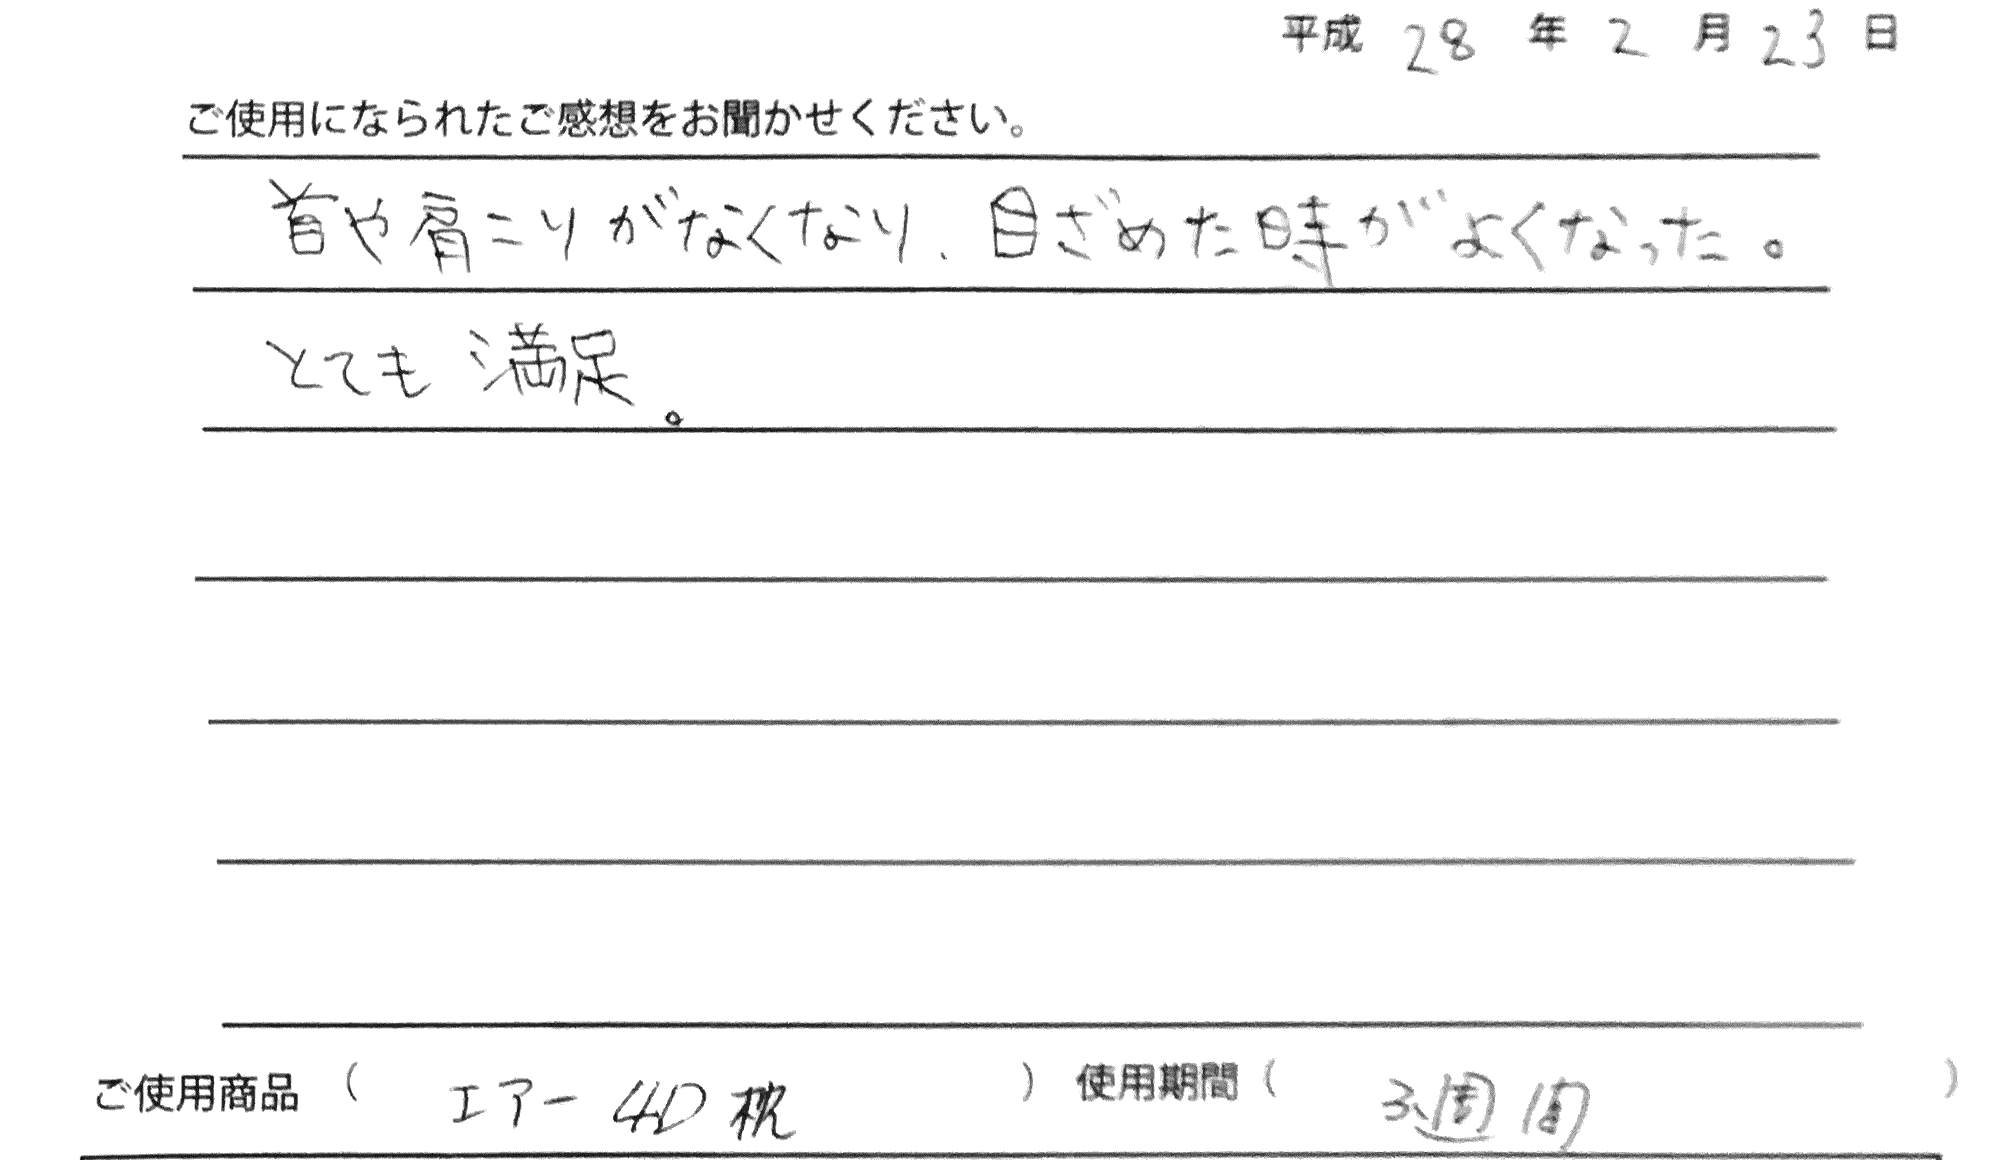 平成 28 年 2 月 23 日
ご使用になられたご感想をお聞かせください。
首や肩こりがなくなり、目ざめた時がよくなった。
とても満足。
ご使用商品 ( エアー4D枕 ) 使用期間 ( 3週間 )